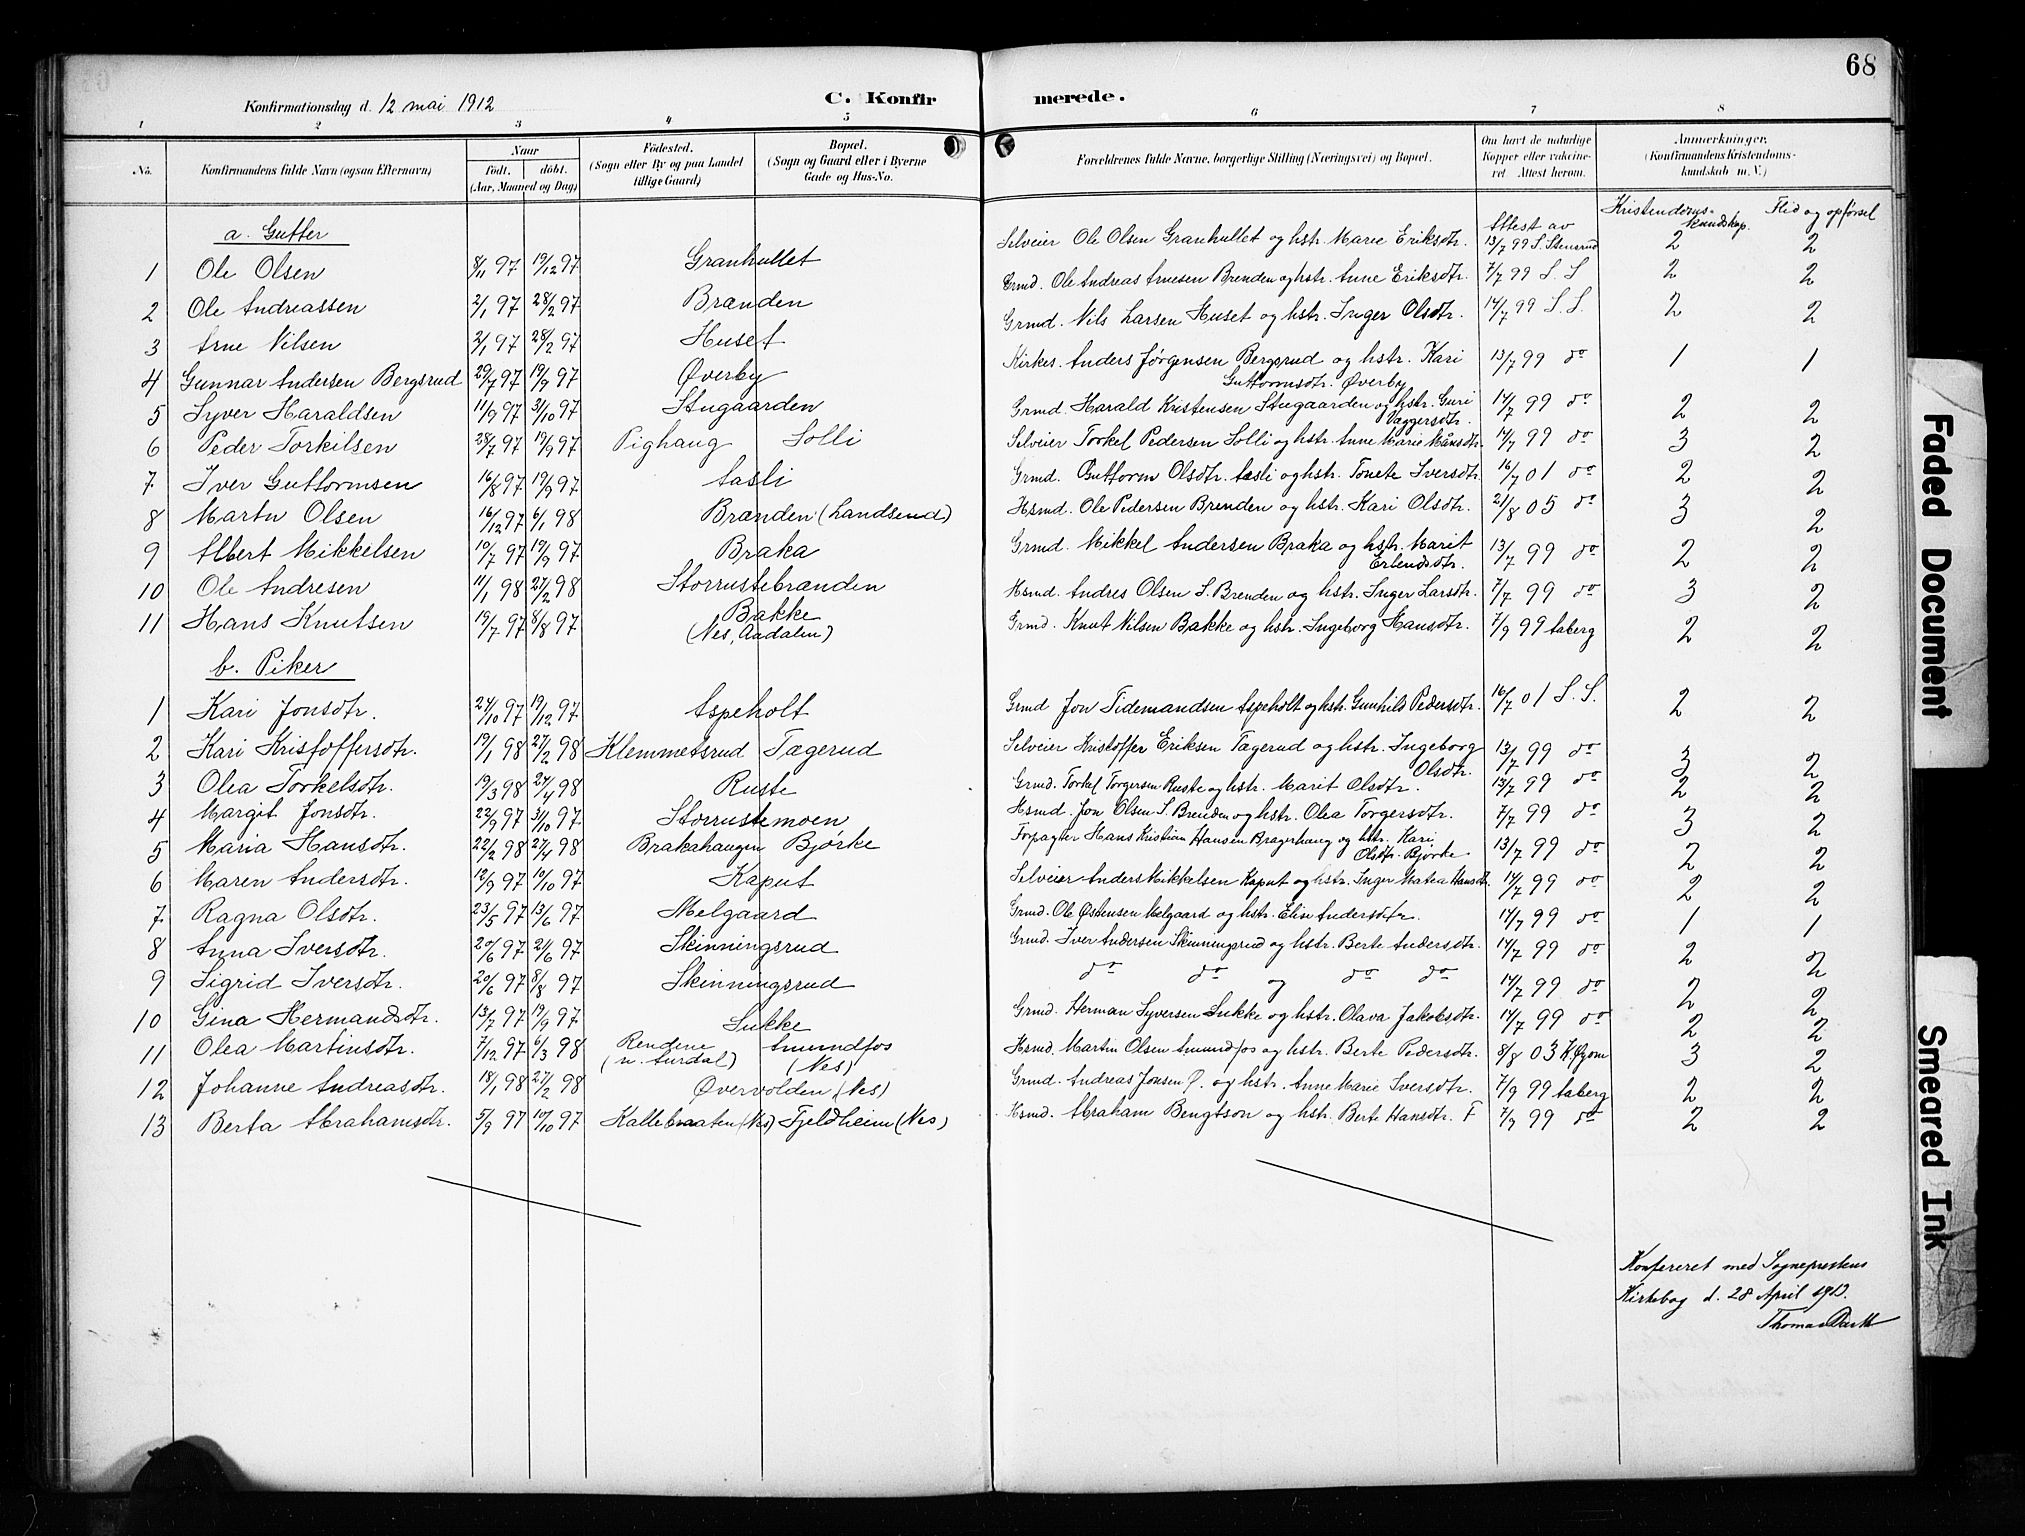 68
Konfirmationsdag d. 12 mai 1912 C. Konfirmerede.
1 2 3 4 5 6 7 8
No. Konfirmandens fulde Navn (ogsaa Efternavn) Naar födt. döbt. (Aar, Maaned og Dag) Födested. (Sogn eller By og paa Landet tillige Gaard) Bopæl. (Sogn og Gaard eller i Byerne Gade og Hus-No. Forældrenes fulde Navne, borgerlige Stilling (Næringsvei) og Bopæl. Om havt de naturlige Kopper eller vaccineret. Attest herom. Anmerkninger, (Konfirmandens Kristendomskundskab m. V.)
a. Gutter Attest av Kristendomskundskap. Flid og opførsel
1 Ole Olsen 8/11 97 19/12 97 Granhullet Selveier Ole Olsen Granhullet og hstr. Marie Eriksdtr. 13/7 99 S. Stensrud 2 2
2 Ole Andreassen 2/1 97 28/2 97 Brænden Grmd. Ole Andreas Arnesen Brenden og hstr. Anne Eriksdtr. 7/7 99 S. S 2 2
3 Arne Nilsen 2/1 97 28/2 97 Huset Grmd. Nils Larsen Huset og hstr. Inger Olsdtr. 14/7 99 S. S. 2 2
4 Gunnar Andersen Bergsrud 29/7 97 19/9 97 Øverby Kirkes. Anders Jørgensen Bergsrud og hstr. Kari Guttormsdtr. Øverby 13/7 99 do 1 1
5 Syver Haraldsen 11/9 97 3/10 97 Stugaarden Grmd. Harald Kristensen Stugaarden og hstr. Guri Vaggersdtr. 14/7 99 do 2 2
6 Peder Torkilsen 28/7 97 19/9 97 Pighaug Solli Selveier Torkel Pedersen Solli og hstr. Anne Marie Månsdtr. 14/7 99 do 3 2
7 Iver Guttormsen 16/8 97 19/9 97 Aasli Grmd. Guttorm Olsdtr. Aasli og hstr. Tonete Iversdtr. 16/7 01 do 2 2
8 Martin Olsen 16/12 97 6/1 98 Brænden (Landsend) Hsmd. Ole Pedersen Brenden og hstr. Kari Olsdtr. 21/8 05 do 3 2
9 Albert Mikkelsen 10/7 97 19/9 97 Braka Grmd. Mikkel Andersen Braka og hstr. Marit Erlendsdtr. 13/7 99 do 2 2
10 Ole Andresen 11/1 98 27/2 98 Storrustebrænden Hsmd. Andres Olsen S. Brenden og hstr. Inger Larsdtr. 7/7 99 do 3 2
11 Hans Knutsen 19/7 97 8/8 97 Bakke (Nes, Aadalen) Grmd. Knut Nilsen Bakke og hstr. Ingeborg Hansdtr. 7/9 99 Aaberg 2 2
b. Piker
1 Kari Jonsdtr. 24/10 97 19/12 97 Aspeholt Grmd Jon Tidemandsen Aspeholt og hstr. Gunhild Pedersdtr. 16/7 01 S. S. 2 2
2 Kari Kristoffersdtr. 19/1 98 27/2 98 Klemmetsrud Tægerud Selveier Kristoffer Eriksen Tægerud og hstr. Ingeborg Olsdtr. 13/7 99 do 3 2
3 Olea Torkelsdtr. 19/3 98 24/4 98 Ruste Grmd. Torkel Torgersen Ruste og hstr. Marit Olsdtr. 13/7 99 do 2 2
4 Margit Jonsdtr. 22/9 97 3/10 97 Storrustemoen Hsmd. Jon Olsen S. Brenden og hstr. Olea Torgersdtr. 7/7 99 do 3 2
5 Maria Hansdtr. 22/2 98 27/4 98 Brakahaugen Bjørke Forpagter Hans Kristian Hansen Bragerhaug og hstr. Kari Olsdtr. Bjørke 13/7 99 do 2 2
6 Maren Andersdtr. 12/9 97 10/10 97 Kaput Selveier Anders Mikkelsen Kaput og hstr. Inger Matea Hansdtr. 14/7 99 do 2 2
7 Ragna Olsdtr. 23/5 97 13/6 97 Melgaard Grmd. Ole Østensen Melgaard og hstr. Elise Andersdtr. 14/7 99 do 1 1
8 Anna Iversdtr. 20/6 97 2/6 97 Skinningsrud Grmd. Iver Andersen Skinningsrud og hstr. Berte Andersdtr. 14/7 99 do 2 2
9 Sigrid Iversdtr. 20/6 97 8/8 97 Skinningsrud do do og do do 14/7 99 do 2 2
10 Gina Hermandsdtr. 13/7 97 19/9 97 Sukke Grmd. Herman Syversen Sukke og hstr. Olava Jakobsdtr. 14/7 99 do 2 2
11 Olea Martinsdtr. 7/12 97 6/3 98 Rendene (n. Aurdal) Amundfos (Nes) Hsmd. Martin Olsen Amundfos og hstr. Berte Pedersdtr. 8/8 03 K. Øyom 3 2
12 Johanne Andreasdtr. 18/1 98 27/2 98 Øvervolden (Nes) Grmd. Andreas Jonsen Ø. og hstr. Anne Marie Iversdtr. 7/9 99 Aaberg 2 2
13 Berta Abrahamsdtr. 5/9 97 10/10 97 Kallebraaten (Nes) Fjeldheim (Nes) Hsmd. Abraham Bengtson og hstr. Berte Hansdtr. F 7/9 99 do 2 2
Konfereret med Sogneprestens
Kirkebog d. 28 April 1913.
Thomas
Faded Document
Smeared Ink